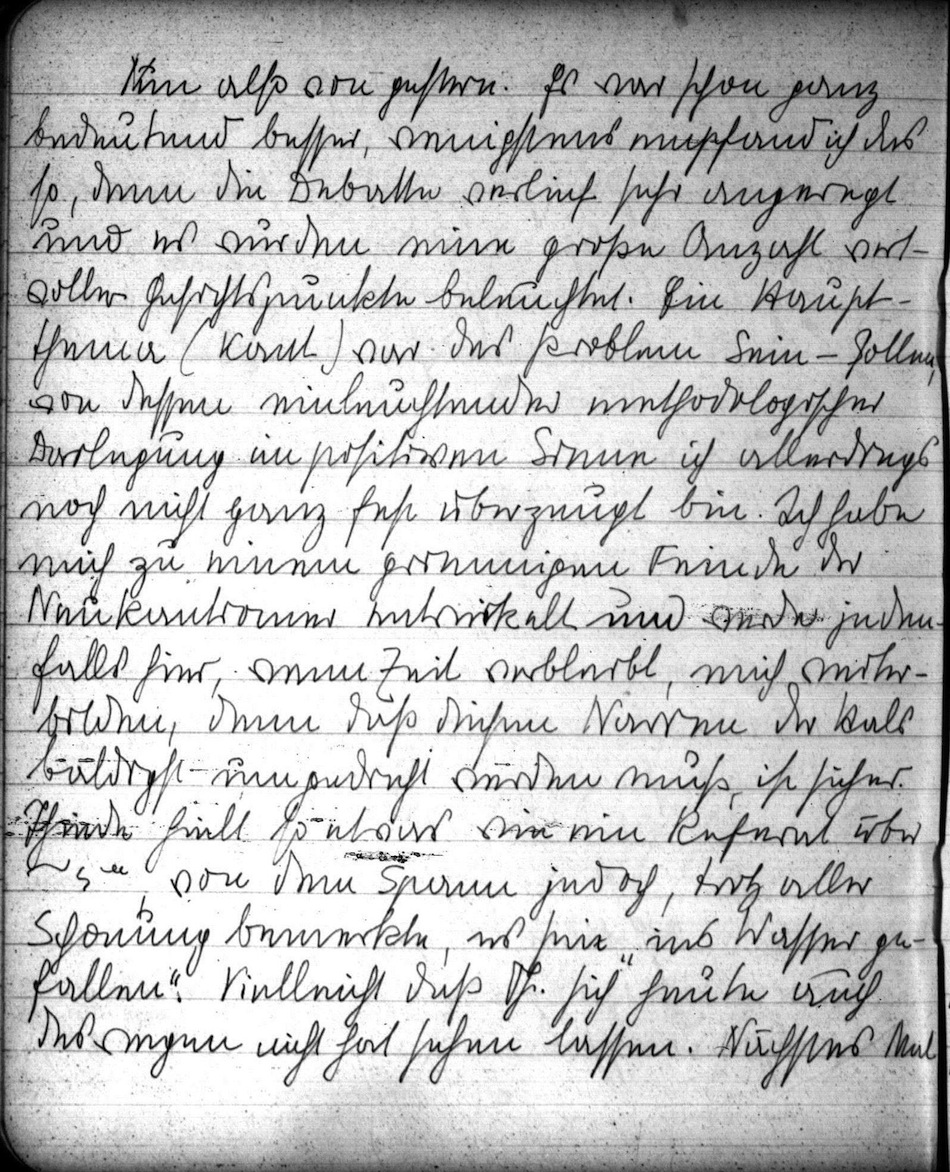 Nun also von gestern. Es war schon ganz
bedeutend besser, wenigstens empfand ich das
so, denn die Debatte verlief sehr angeregt
und es wurden eine große Anzahl wert-
voller Gesichtspunkte beleuchtet. Ein Haupt-
thema (Kant) war das Problem Sein – Sollen,
von dessen einleuchtender methodologischer
Darlegung im positiven Sinne ich allerdings
noch nicht ganz fest überzeugt bin. Ich habe
mich zu einem grimmigen Feinde der
Neukantianer entwickelt und werde jeden-
falls hier, wenn Zeit verbleibt, mich weiter-
bilden, denn daß diesen Narren der Hals
baldigst umgedreht werden muß, ist sicher.
hielt so etwas wie ein Referat über
von dem Spann jedoch, trotz aller
Schonung bemerkte, es sei „ins Wasser ge-
fallen“. Vielleicht daß Th. sich heute auch
deswegen nicht hat sehen lassen. Nächstes Mal